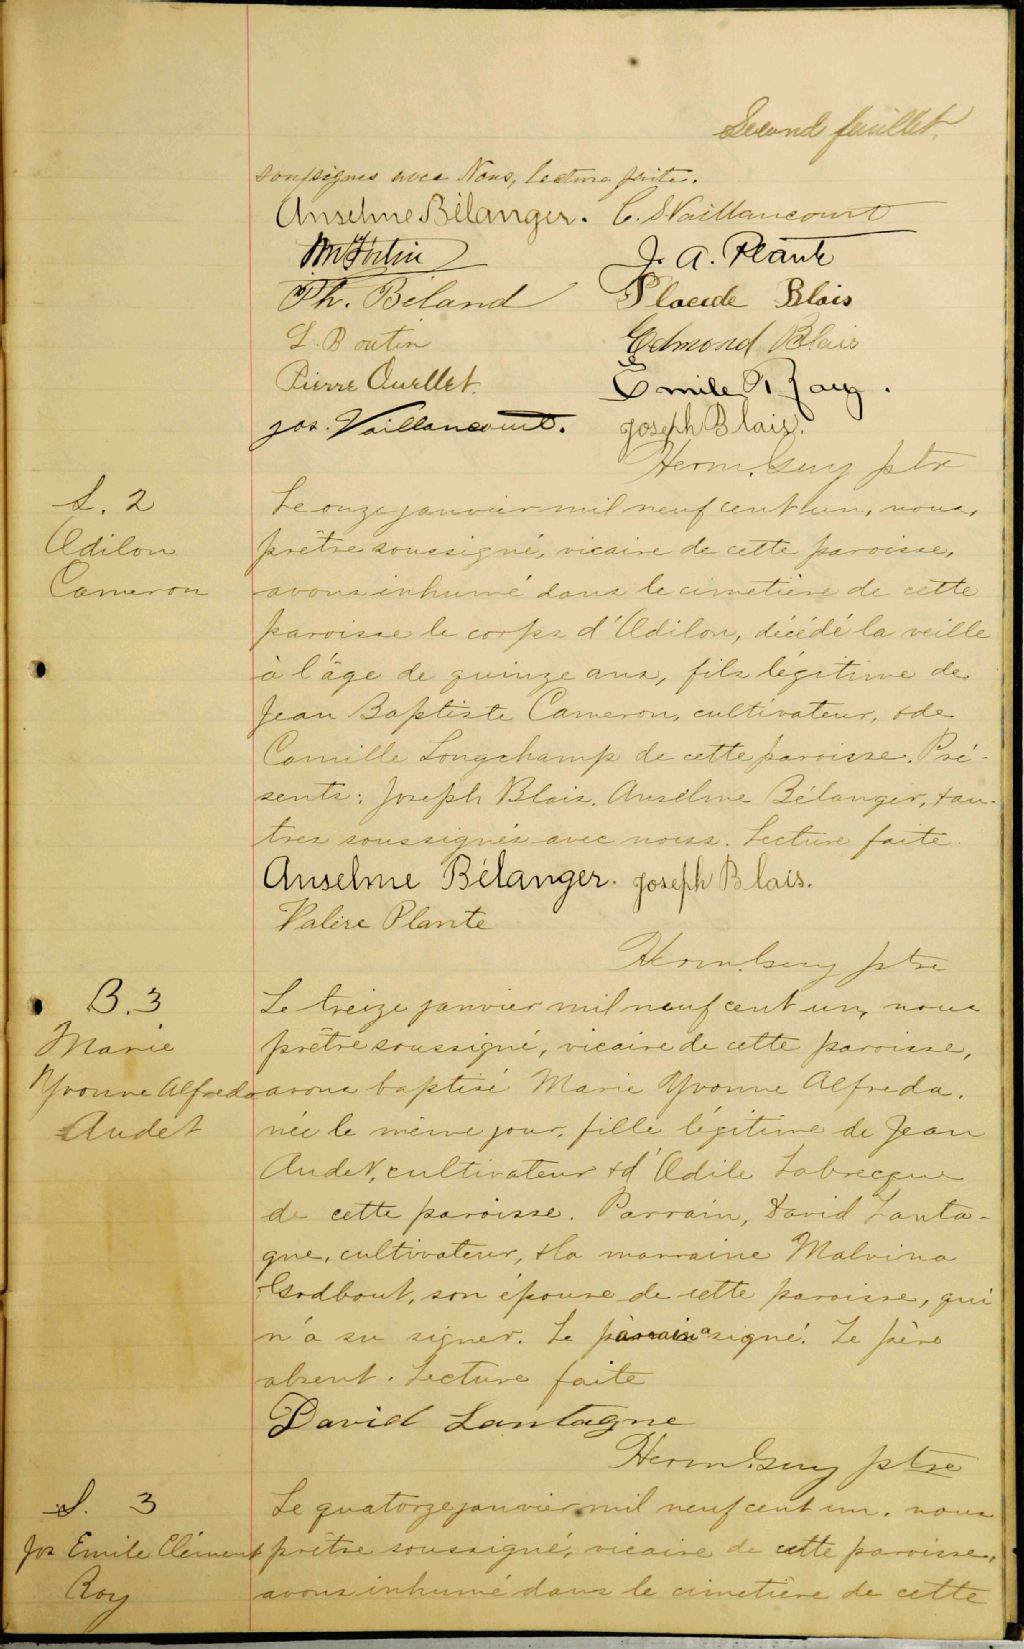 Second feuillet.
soussignés avec Nous, lecture faite.
Anselme Bélanger. C. S Vaillancourt
Wm Fortin J. A. Plante
Ph. Béland Placide Blais
L. Boutin Edmond Blais
Pierre Ouellet Emile Roy.
Jos. Vaillancourt. Joseph Blais.
Herm. Guy ptre
S. 2
Odilon
Cameron
Le onze janvier mil neuf cent un, nous,
prêtre soussigné, vicaire de cette paroisse,
avons inhumé dans le cimetière de cette
paroisse le corps d'Odilon, décédé la veille
à l'âge de quinze ans, fils légitime de
Jean Baptiste Cameron, cultivateur, & de
Camille Longchamp de cette paroisse. Pré-
sents: Joseph Blais, Anselme Bélanger, & au-
tres soussignés avec nous. Lecture faite.
Anselme Bélanger. Joseph Blais.
Valère Plante
Herm. Guy ptre
B. 3
Marie
Yvonne Alfreda
Audet
Le treize janvier mil neuf cent un, nous
prêtre soussigné, vicaire de cette paroisse,
avons baptisé Marie Yvonne Alfreda,
née le même jour, fille légitime de Jean
Audet, cultivateur & d'Odile Labrecque
de cette paroisse. Parrain, David Lanta-
gne, cultivateur, & la marraine Malvina
Godbout, son épouse de cette paroisse, qui
n'a su signer. Le parrain a signé. Le père
absent. Lecture faite
David Lantagne
Herm. Guy ptre
S. 3
Jos Emile Clément
Roy
Le quatorze janvier mil neuf cent un, nous
prêtre soussigné, vicaire de cette paroisse,
avons inhumé dans le cimetière de cette